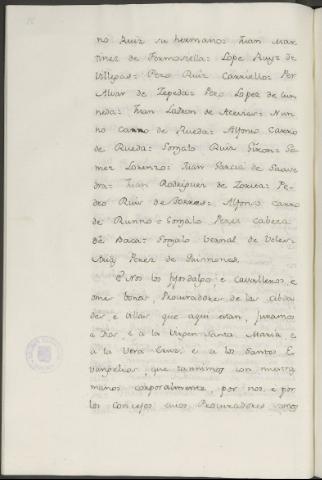 no Ruiz su hermano: Iuan Mar-
tinez de Formosiella: Lope Ruyz de
Villegas: Pero Ruiz Carriello: Per
Alvar de Zepeda: Pero Lopez de
Iuan Ladron de Nun-
no Carro de Rueda: Alfonso Carro
de Rueda: Gonzalo Ruiz Giron: Go-
mez Lorenzo: Iuan Garcia de Saave
dra: Iuan Rodriguez de Pe-
dro Ruiz de Torres: Alfonso Carro
de Gonzalo Perez Cabeza
de Baca: Gonzalo Bernal de
Ruy Perez de
E Nos los fijosdalgo e Cavalleros, e
ome bonos, Procuradores de las cibda
des e villas que aqui estan, juramos
a Dios, e a la Virgen Santa Maria, e
a la Vera Cruz, e a los Santos E
vangelios, que tannimos con nuestras
manos corporalmente, por nos, e por
los Concejos cuios Procuradores somos